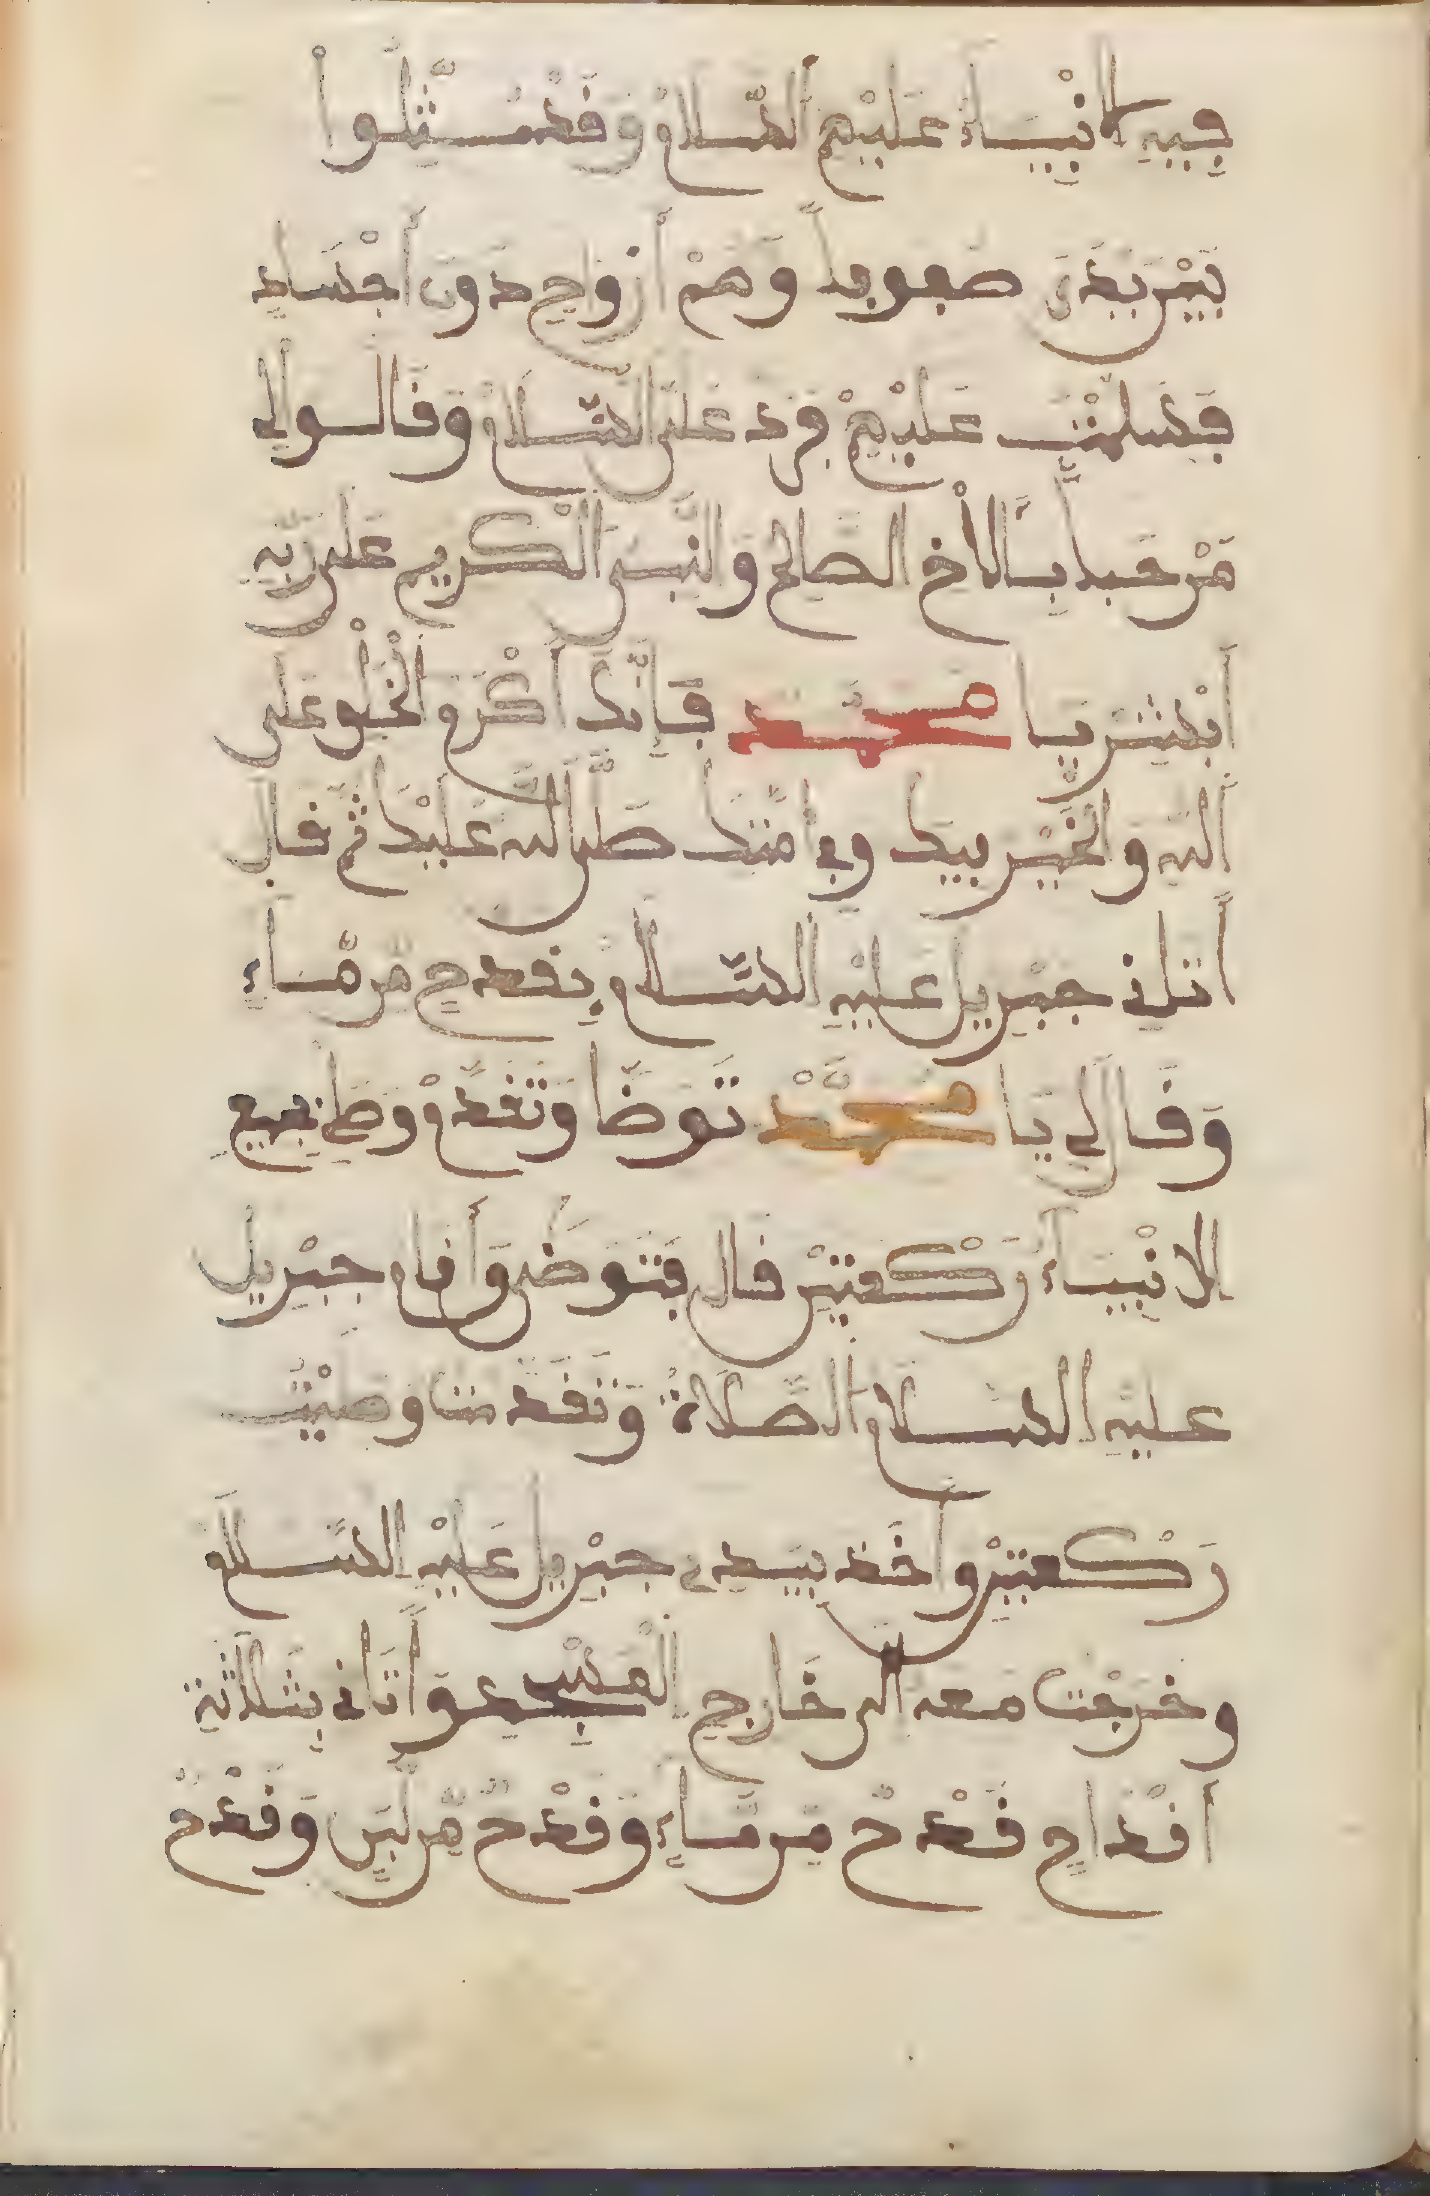 فيه الانبياء عليهم السلام وفد مثلوا
بين يدي صفوفا وهم أرواح دون أجساد
فسلمت عليهم فرد علي السلام وقالوا لي
مرحبا بالاخ الصالح والنبي الكريم على ربه
أبشر يا محمد فإنك أكرم الخلق على
الله والخير بيدك وفي امتك صلى الله عليك ثم قال
أتاني جبريل عليه السلام بقدح من ماء
وقال لي يا محمد توضأ وتقدم وصل بجميع
الانبياء ركعتين قال فتوضى وأقام جبريل
عليه السلام الصلاة وتقدمت وصليت
ركعتين وأخذ بيدي جبريل عليه السلام
وخرجت معه الى خارج المسجد وأتاني بثلاثة
أقداح قدح من ماء وقدح من لبن وقدح